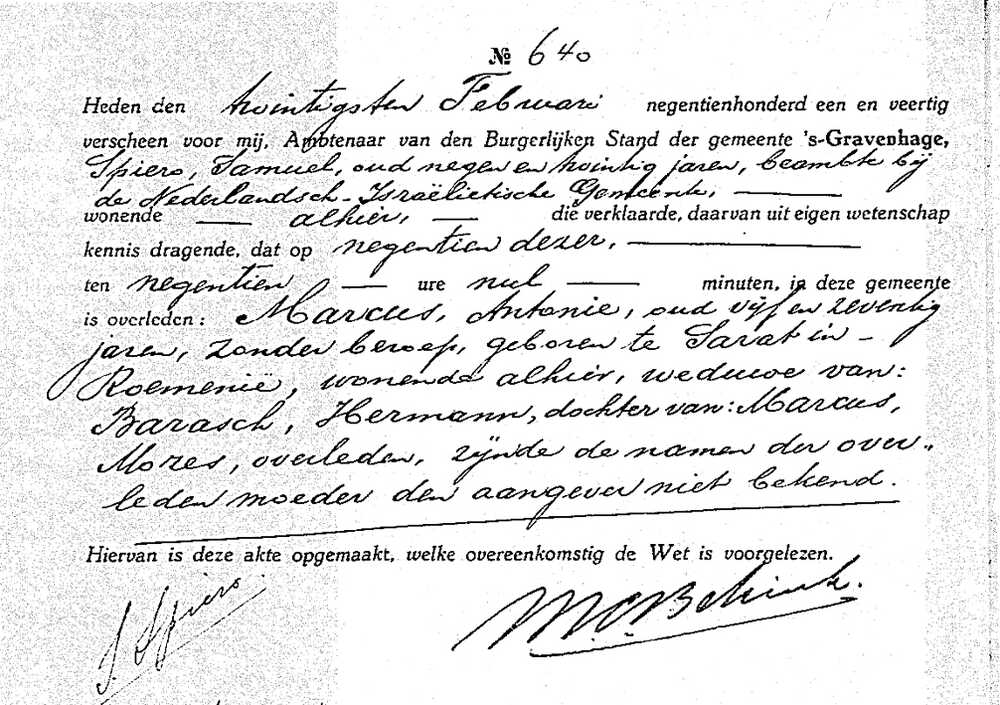 № 640
Heden den twintigsten Februari negentienhonderd een en veertig
verscheen voor mij, Ambtenaar van den Burgerlijken Stand der gemeente 's-Gravenhage,
Spiero, Samuel, oud negen en twintig jaren, beambte bij
de Nederlandsch-Israëlietische Gemeente,
wonende alhier, die verklaarde, daarvan uit eigen wetenschap
kennis dragende, dat op negentien dezer,
ten negentien ure nul minuten, in deze gemeente
is overleden: Marcus, Antonie, oud vijf en zeventig
jaren, zonder beroep, geboren te Sarat in
Roemenië, wonende alhier, weduwe van:
Barasch, Hermann, dochter van: Marcus,
Mozes, overleden, zijnde de namen der over-
leden moeder den aangever niet bekend.
Hiervan is deze akte opgemaakt, welke overeenkomstig de Wet is voorgelezen.
S. Spiero